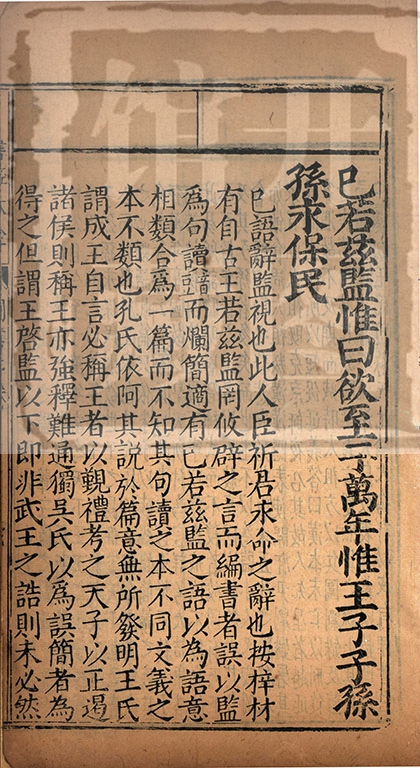 已若茲監惟曰欲至于萬年惟王子子孫
孫永保民
已語辭監視也此人臣祈君永命之辭也按梓材
有自古王若茲監罔攸辟之言而編書者誤以監
爲句讀而爛簡適有已若茲監之語以為語意
相類合爲一篇而不知其句讀之本不同文義之
本不類也孔氏依阿其說於篇意無所發明王氏
謂成王自言必稱王者以覲禮考之天子以正遏
諸侯則稱王亦強釋難通獨吳氏以爲誤簡者為
得之但謂王啓監以下即非武王之誥則未必然